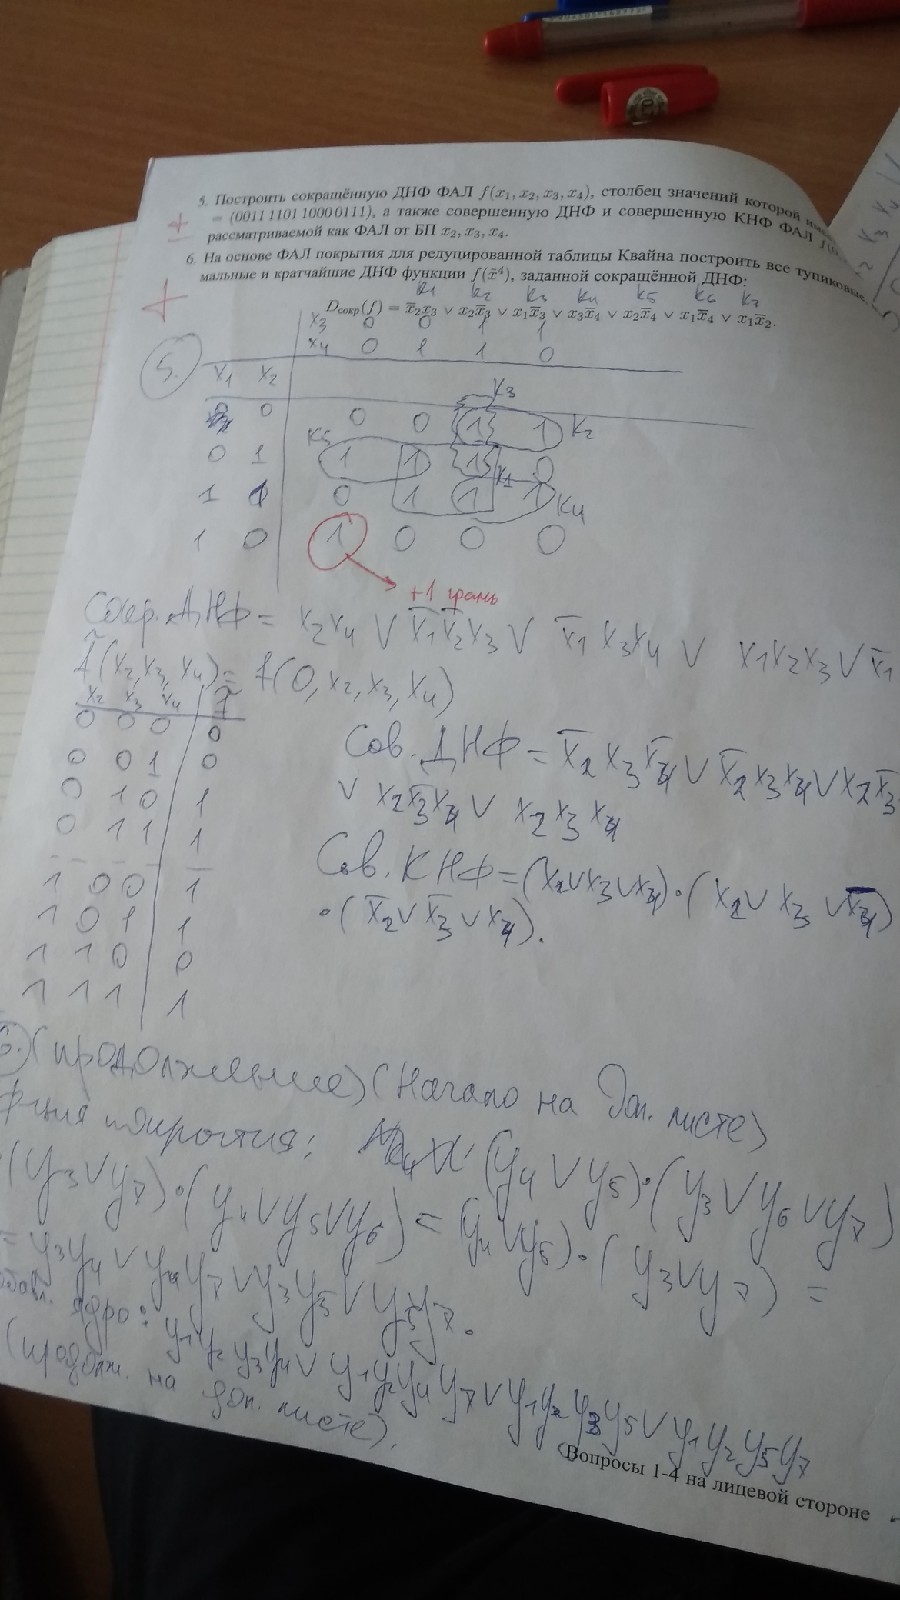 5. Построить сокращённую ДНФ ФАЛ f(x₁, x₂, x₃, x₄), столбец значений которой
= (0011 1101 1000 0111), а также совершенную ДНФ и совершенную КНФ ФАЛ
рассматриваемой как ФАЛ от БП x₂, x₃, x₄.
6. На основе ФАЛ покрытия для редуцированной таблицы Квайна построить все тупиковые,
мальные и кратчайшие ДНФ функции f(x̃⁴), заданной сокращённой ДНФ:
K₁ K₂ K₃ K₄ K₅ K₆ K₇
D_сокр(f) = x̄₂x₃ ∨ x₂x̄₃ ∨ x₁x̄₃ ∨ x₃x̄₄ ∨ x₂x̄₄ ∨ x₁x̄₄ ∨ x₁x̄₂.
x₃ 0 0 1 1
5. x₄ 0 1 1 0
x₁ x₂
K₃
0 0 0 0 1 1 K₂
K₅
0 1 1 1 1 0
K₁
1 1 0 1 1 1 K₄
1 0 1 0 0 0
+1 грань
Сокр. ДНФ = x₂x₄ ∨ x̄₁x̄₂x₃ ∨ x̄₁x₃x₄ ∨ x₁x₂x₃ ∨ x̄₁
f̃(x₂, x₃, x₄) = f(0, x₂, x₃, x₄)
x₂ x₃ x₄ f̃
0 0 0 0
0 0 1 0
0 1 0 1
0 1 1 1
1 0 0 1
1 0 1 1
1 1 0 0
1 1 1 1
Сов. ДНФ = x̄₂x₃x̄₄ ∨ x̄₂x₃x₄ ∨ x₂x̄₃
∨ x₂x̄₃x₄ ∨ x₂x₃x₄
Сов. КНФ = (x₂∨x₃∨x₄)·(x₂∨x₃∨x̄₄)
·(x̄₂∨x̄₃∨x₄).
6. (продолжение) (Начало на доп. листе)
покрытия: (y₄∨y₅)·(y₃∨y₆∨y₇)
(y₃∨y₇)·(y₄∨y₅∨y₆) = (y₄∨y₅)·(y₃∨y₇) =
= y₃y₄ ∨ y₄y₇ ∨ y₃y₅ ∨ y₅y₇.
ядро: y₁y₂y₃y₄ ∨ y₁y₂y₄y₇ ∨ y₁y₂y₃y₅ ∨ y₁y₂y₅y₇
(продолж. на доп. листе).
(Вопросы 1-4 на лицевой стороне